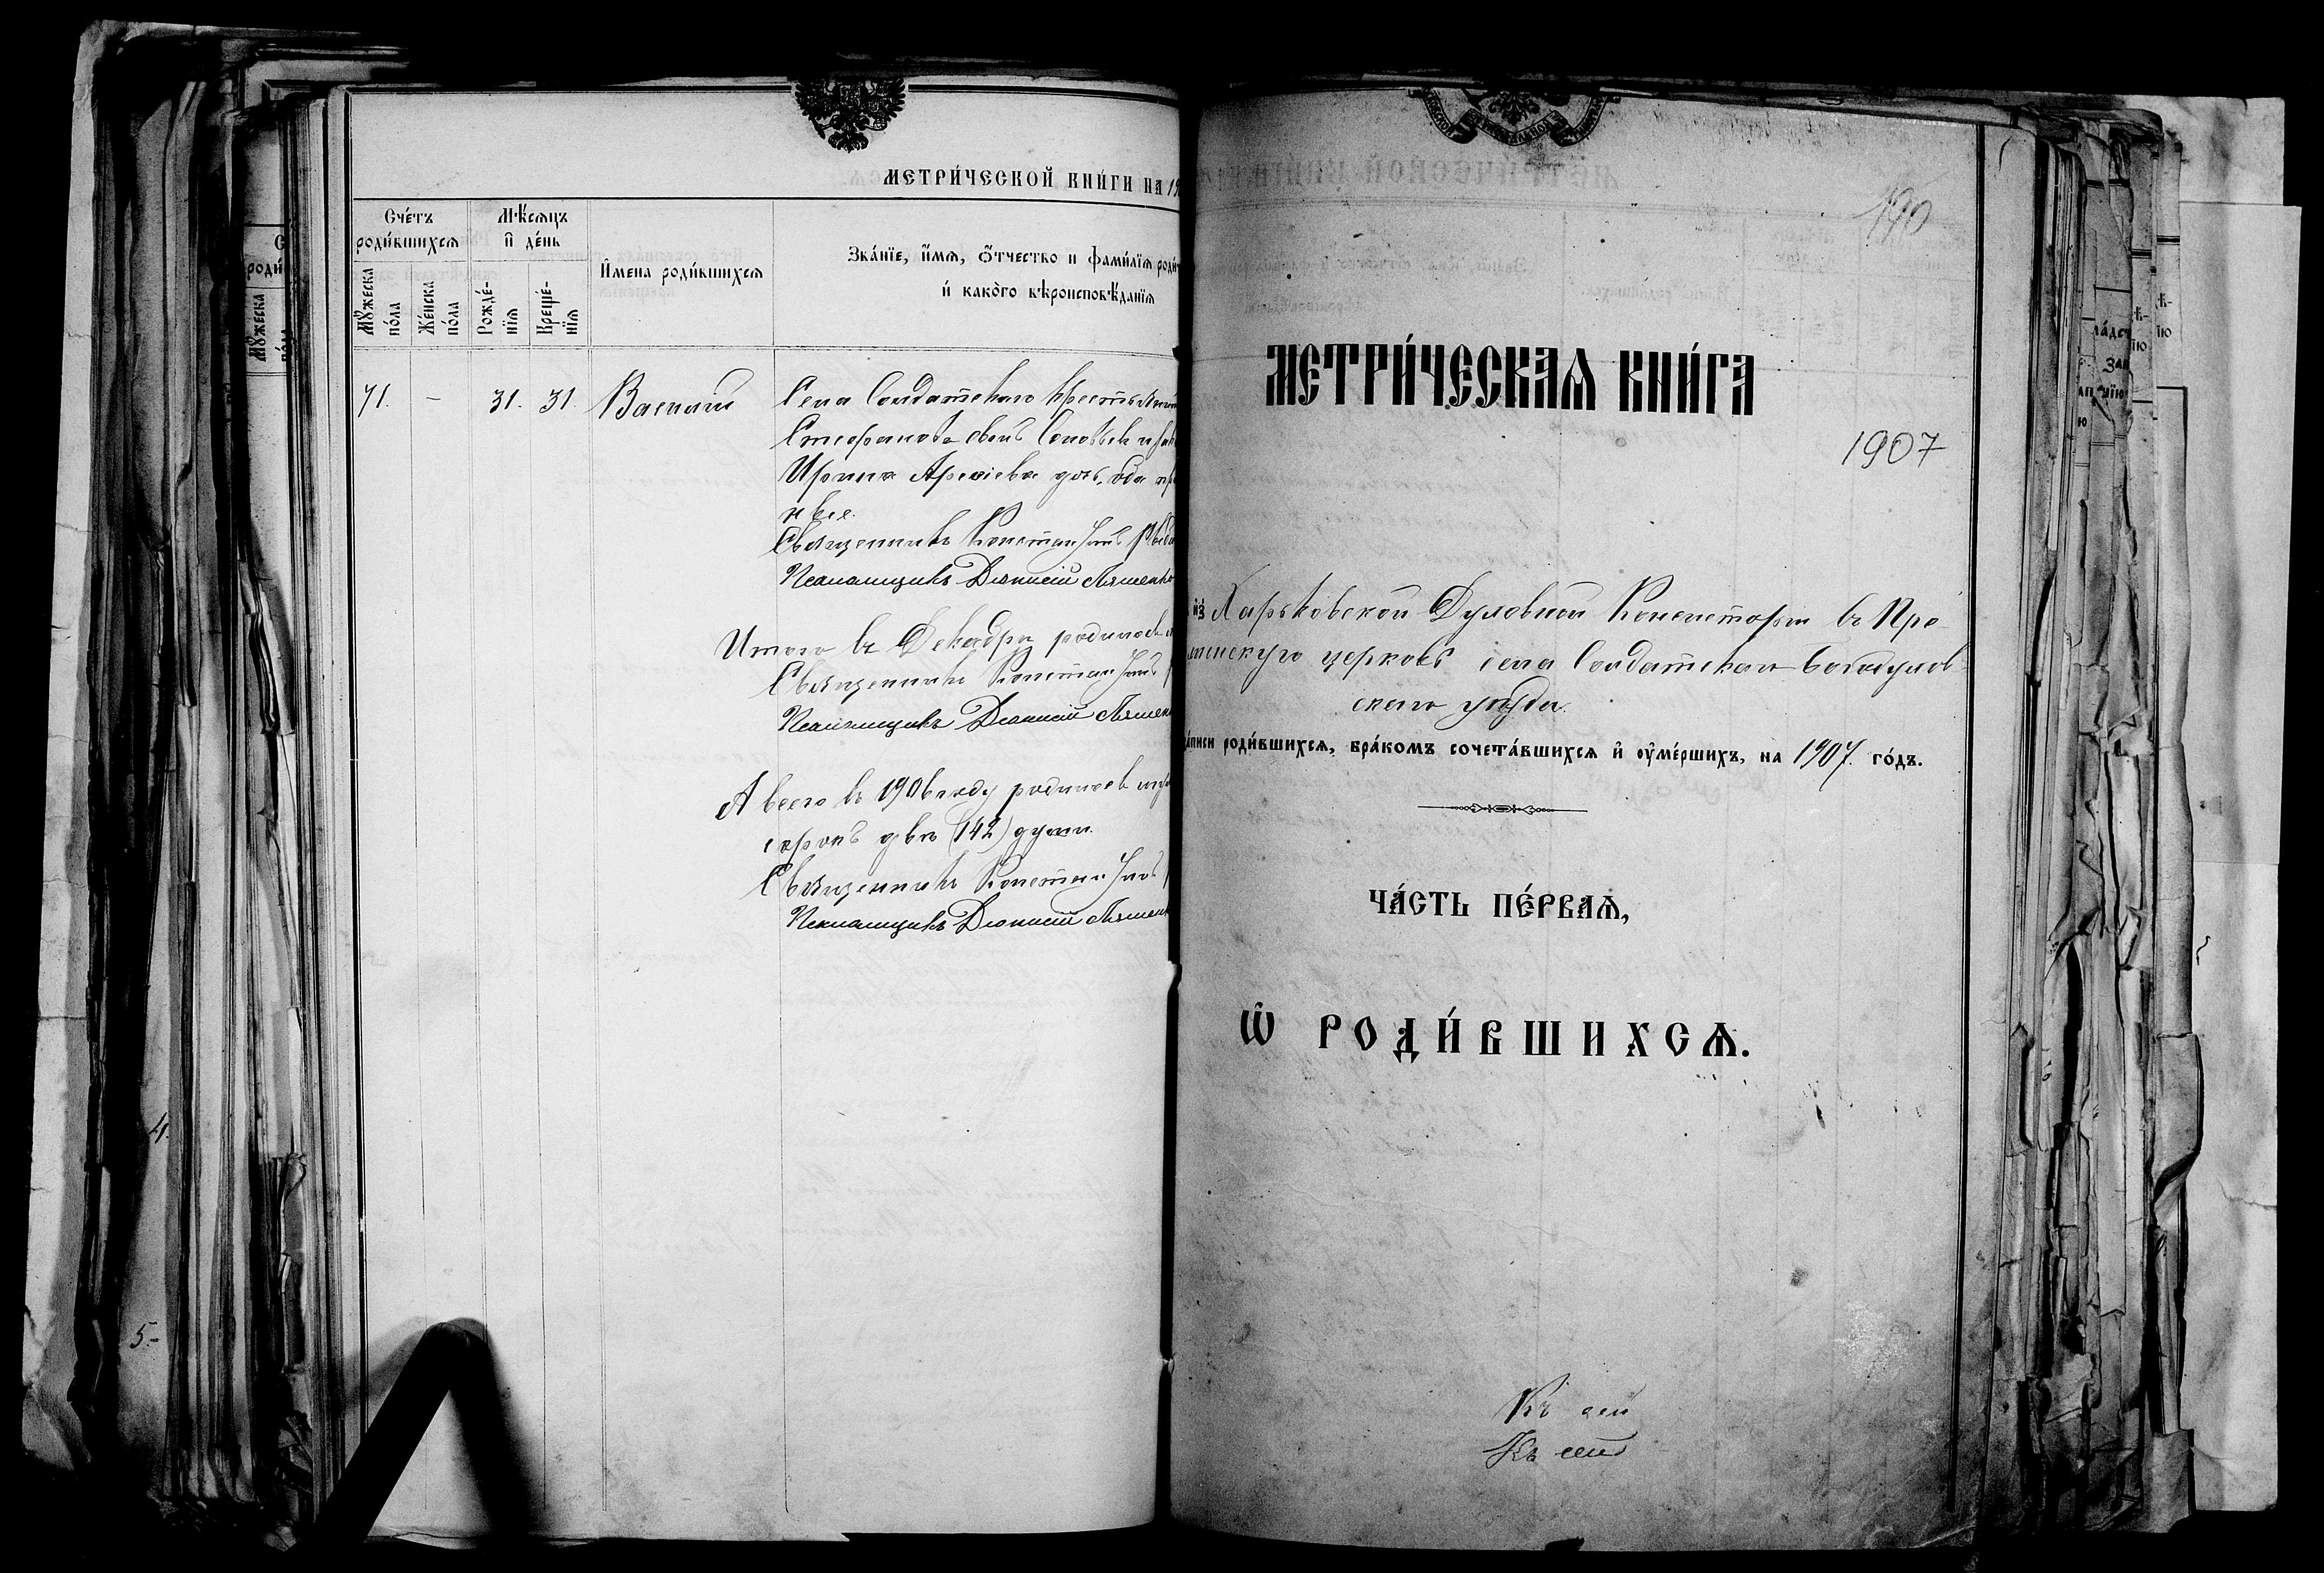 МЕТРИ́ЧЕСКОЙ КНИ́ГИ НА 19
Сче́тъ роди́вшихсѧ
Мѣ́сѧцъ и҆ де́нь
И҆мена роди́вшихсѧ
Зва́нїе, и҆́мѧ, ѻ҆́тчество и фами́лїѧ роди́
и҆ како́го вѣроисповѣ́данїѧ
Мꙋ́жеска по́ла
Же́нска по́ла
Рожде́-нїѧ
Креще́-нїѧ
71. – 31. 31. Василій
Села Солдатскаго крестьянин
Стефанова сынъ
Ирина дочь, оба пр
ные.
Священникъ Константинъ
Псаломщикъ Діонисій Ляшенко
Итого въ Декабрѣ родилось
Священникъ Константинъ
Псаломщикъ Діонисій Ляшен
А всего въ 1906 году родилось
сорокъ двѣ (142) души.
Священникъ Константинъ
Псаломщикъ Діонисій Ляшен
190
МЕТРИ́ЧЕСКАѦ КНИ́ГА
1907
и҆з̾ Харьковской Духовной Консисторіи въ Пре-
менскую церковь села Солдатскаго Богодухов-
скаго уѣзда.
а́писи роди́вшихсѧ, бра́комъ сочета́вшихсѧ и҆ ᲂу҆ме́ршихъ, на 1907. го́дъ.
ЧА́СТЬ ПЕ́РВАѦ,
Ѽ РОДИ́ВШИХСѦ.
Къ сей
Къ сей
4.
5.-